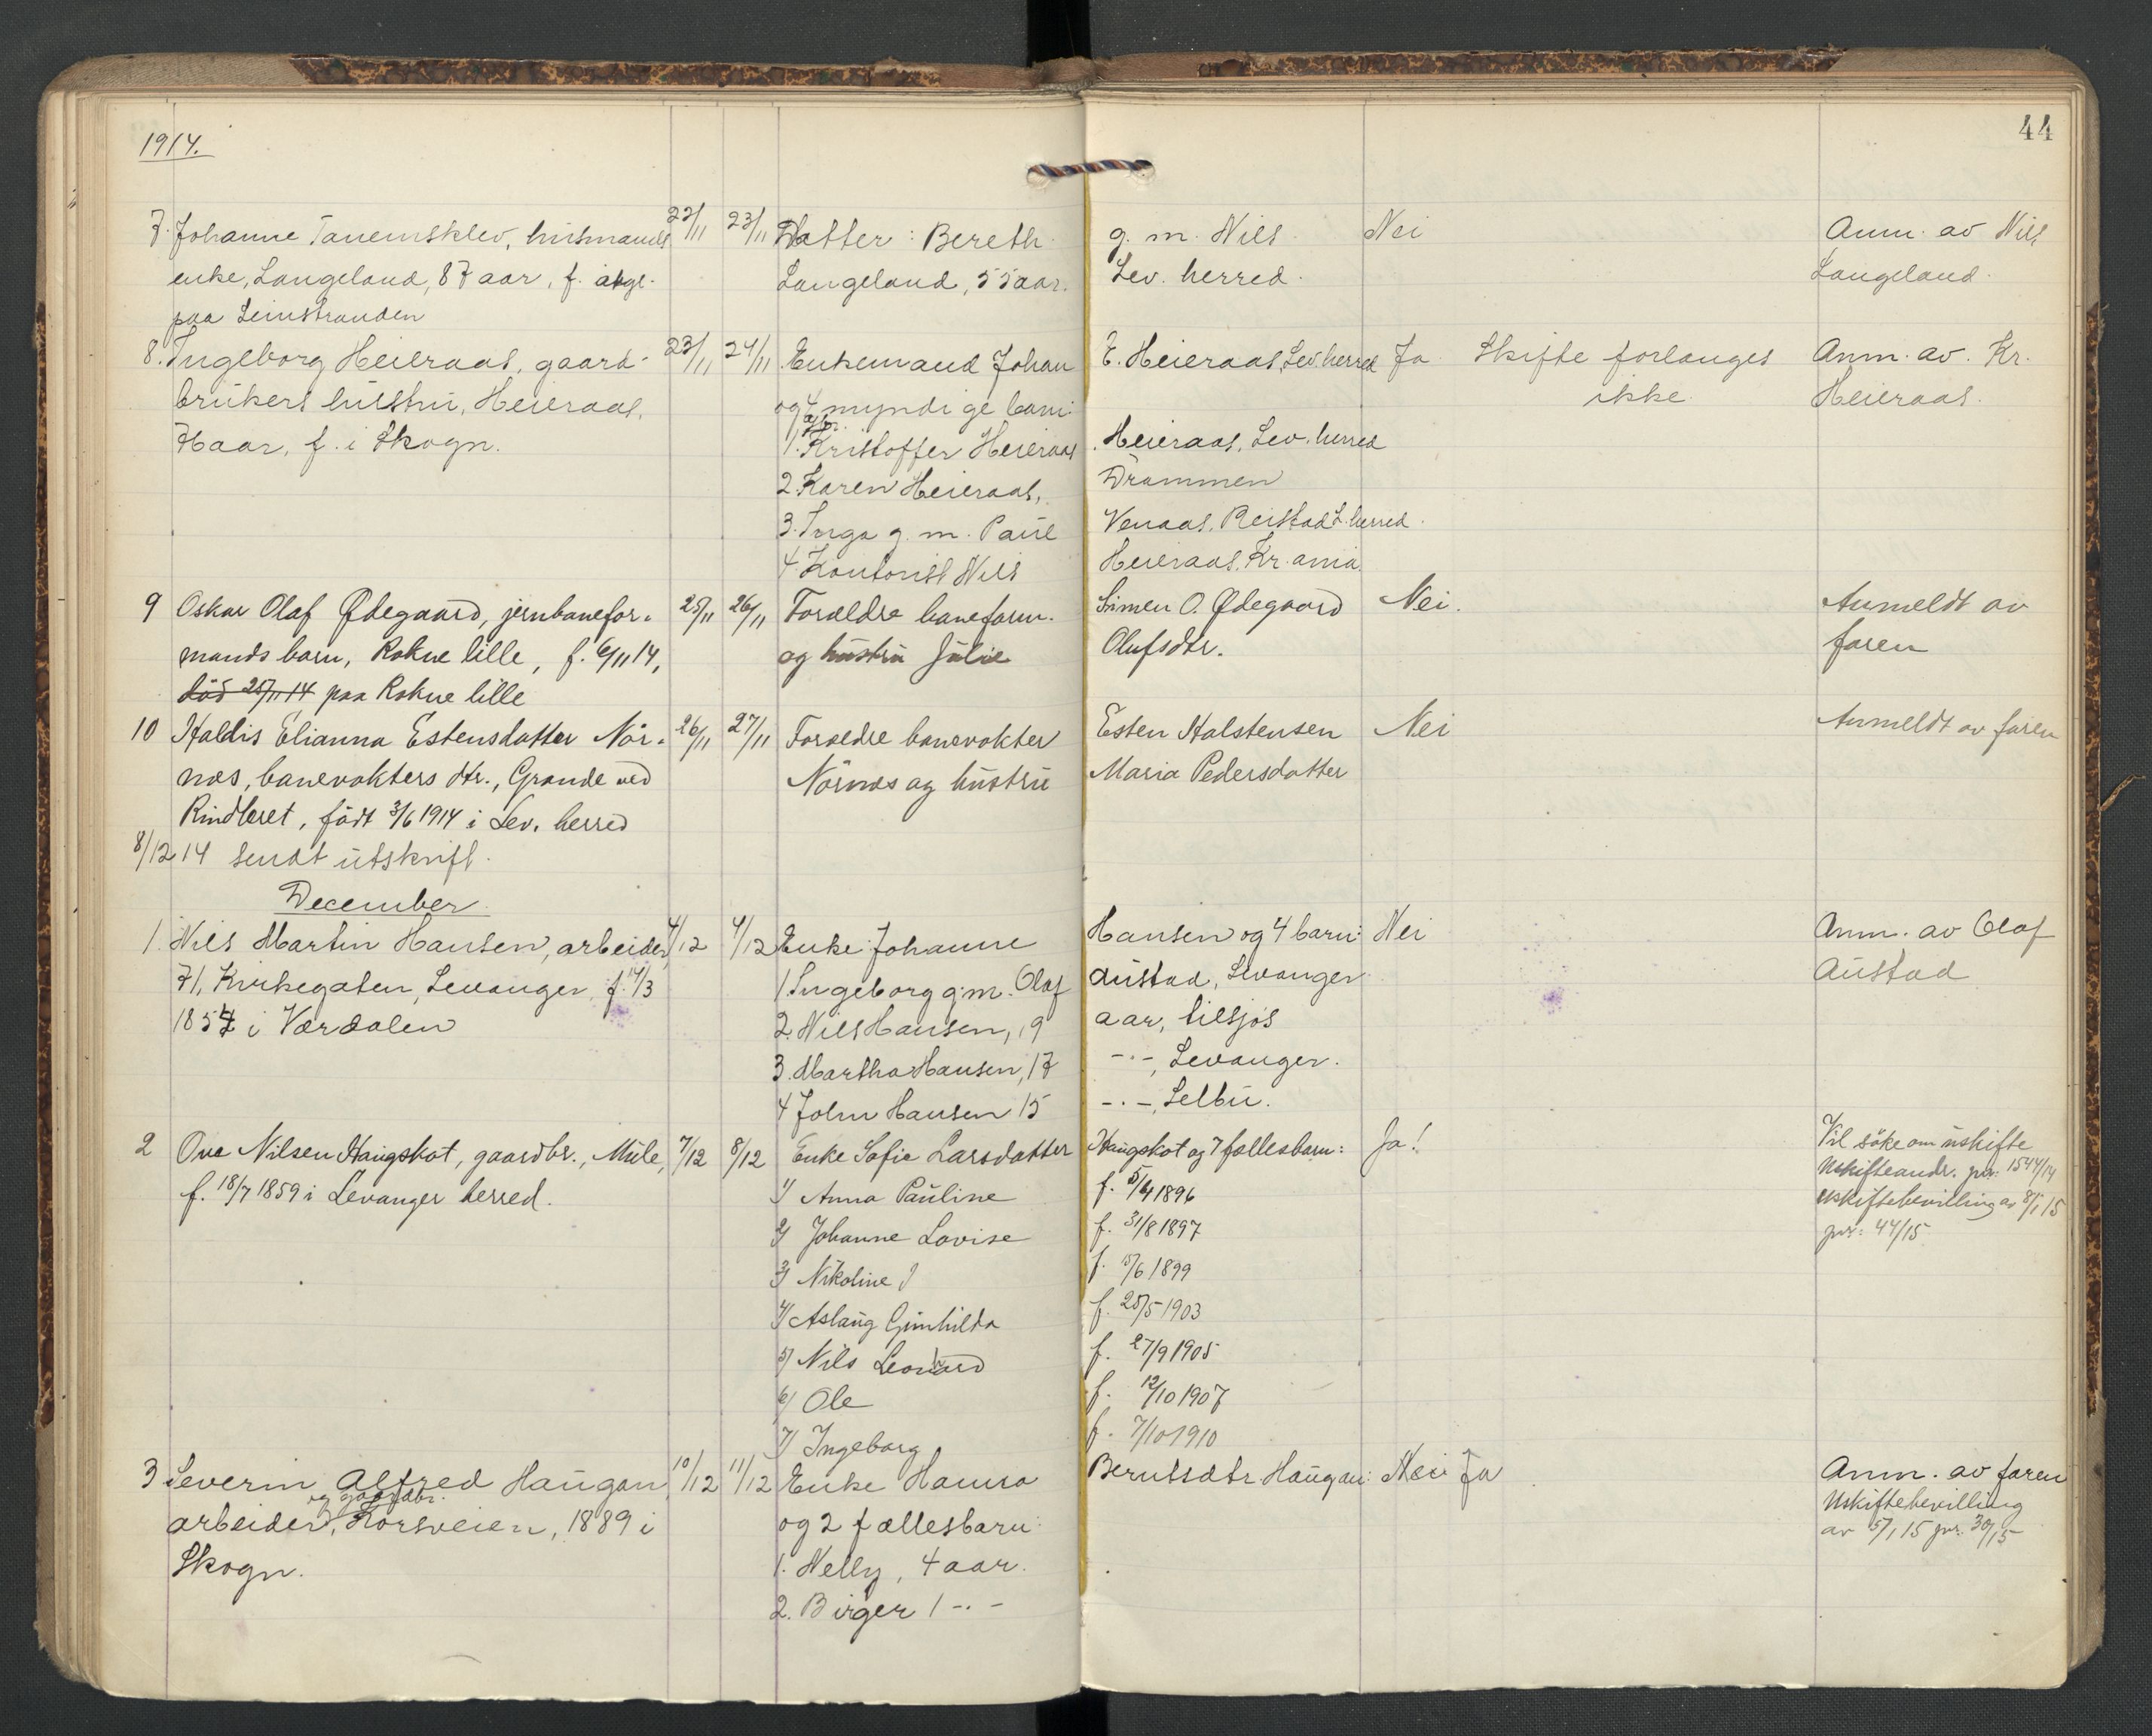 44
1914.
7. Johanne Tanemsklev, husmands 22/11 23/11 Datter: Bereth g. m. Nils Nei Anm. av Nils
enke, Langeland, 87 aar, f. Langeland, 55 aar. Lev. herred. Langeland.
paa Leinstranden
8. Ingeborg Heieraas, gaard- 23/11 24/11 Enkemand Johan E. Heieraas, Lev. herred Ja Skifte forlanges Anm. av. Kr.
brukers hustru, Heieraas, og 4 myndige barn: ikke. Heieraas.
aar, f. i Skogn. 1. Kristoffer Heieraas Heieraas, Lev. herred
2. Karen Heieraas, Drammen
3. Inga g. m. Paul Venaas, Reistad L. herred.
4. Kontorist Nils Heieraas, Kr.ania.
9 Oskar Olaf Ødegaard, jernbanefor- 25/11 26/11 Forældre baneform. Simen O. Ødegaard Nei. Anmeldt av
mands barn, Rokne lille, f. 6/11 14, og hustru Julie Olufsdtr. faren
död 25/11 14 paa Rokne lille
10 Haldis Elianna Estensdatter Nör- 26/11 27/11 Foraeldre banevokter Esten Halstensen Nei Anmeldt av faren
næs, banevokters dtr., Grande ved Nörnæs og hustru Maria Pedersdatter
Rindleret, födt 3/6 1914 i Lev. herred
8/12 14 sendt utskrift.
December
1. Nils Martin Hansen, arbeider, 4/12 4/12 Enke Johanne Hansen og 4 barn: Nei Anm. av Olaf
71, Kirkegaten, Levanger, f. 14/3 1. Ingeborg g.m. Olaf Austad, Levanger Austad
185 i Værdalen 2. Nils Hansen, 19 aar, tilsjös
3. Martha Hansen, 17 -.-, Levanger.
4 John Hansen 15 -.-, Selbu.
2 Ove Nilsen Haugskot, gaardbr., Mule, 7/12 8/12 Enke Sofie Larsdatter Haugskot og 7 fællesbarn: Ja! Vil söke om uskifte
f. 18/7 1859 i Levanger herred. 1/ Anna Pauline f. 5/4 1896 Uskifteandr. pr: 1544/14
2/ Johanne Lovise f. 31/8 1897 Uskiftebevilling av 8/1 15
3/ Nikoline J f. 15/6 1899 44/15
4/ Aslaug Gunhilda f. 25/5 1903
5/ Nils Leonard f. 27/9 1905
6/ Ole f. 12/10 1907
7/ Ingeborg f. 7/10 1910
3 Severin Alfred Haugan 10/12 11/12 Enke Hanna Berntsdtr. Haugan: Nei Ja Anm. av faren
og gaardbr.
arbeider, Korsveien, 1889 i og 2 fællesbarn: Uskiftebevilling
Skogn. 1. Nelly, 4 aar. av 5/1 15 30/15
2. Birger 1 -.-